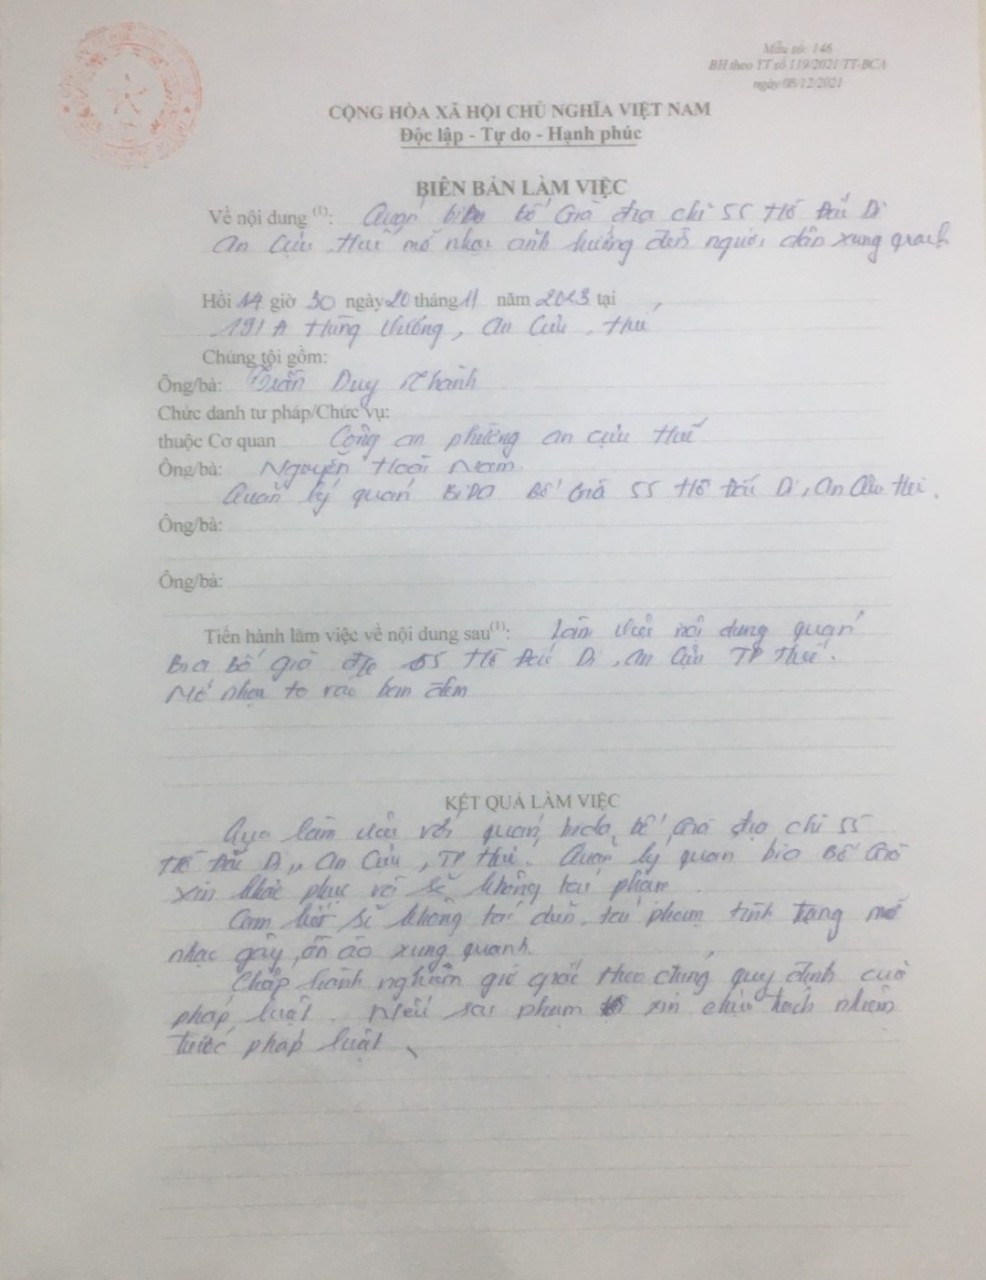 Mẫu số: 146
BH theo TT số 119/2021/TT-BCA
ngày 08/12/2021
CỘNG HÒA XÃ HỘI CHỦ NGHĨA VIỆT NAM
Độc lập - Tự do - Hạnh phúc
BIÊN BẢN LÀM VIỆC
Về nội dung (1): Quán bida bố Già địa chỉ 55 Hồ Đắc Di
An Cựu Huế mở nhạc ảnh hưởng đến người dân xung quanh
Hồi 14 giờ 30 ngày 20 tháng 11 năm 2023 tại
191 A Hùng Vương, An Cựu, Huế
Chúng tôi gồm:
Ông/bà: Trần Duy Khánh
Chức danh tư pháp/Chức vụ:
thuộc Cơ quan Công an phường An Cựu Huế
Ông/bà: Nguyễn Hoài Nam
Quản lý quán BiDa Bố Già 55 Hồ Đắc Di, An Cựu Huế.
Ông/bà:
Ông/bà:
Tiến hành làm việc về nội dung sau(1): Làm việc nội dung quán
Bia bố già đ/c 55 Hồ Đắc Di, An Cựu TP Huế.
Mở nhạc to vào ban đêm
KẾT QUẢ LÀM VIỆC
Qua làm việc với quán bida bố Già địa chỉ 55
Hồ Đắc Di, An Cựu, TP Huế. Quản lý quán bia Bố Già
xin khắc phục và sẽ không tái phạm.
Cam kết sẽ không tái diễn, tái phạm tình trạng mở
nhạc gây ồn ào xung quanh.
Chấp hành nghiêm giờ giấc theo đúng quy định của
pháp luật. Nếu sai phạm xin chịu trách nhiệm
trước pháp luật